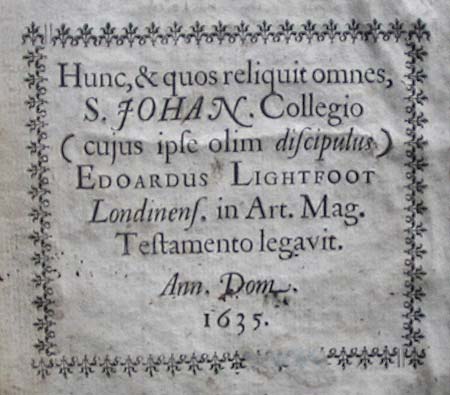 Hunc, & quos reliquit omnes,
S. JOHAN. Collegio
( cujus ipſe olim diſcipulus )
EDOARDUS LIGHTFOOT
Londinenſ. in Art. Mag.
Teſtamento legavit.
Ann. Dom.
1635.